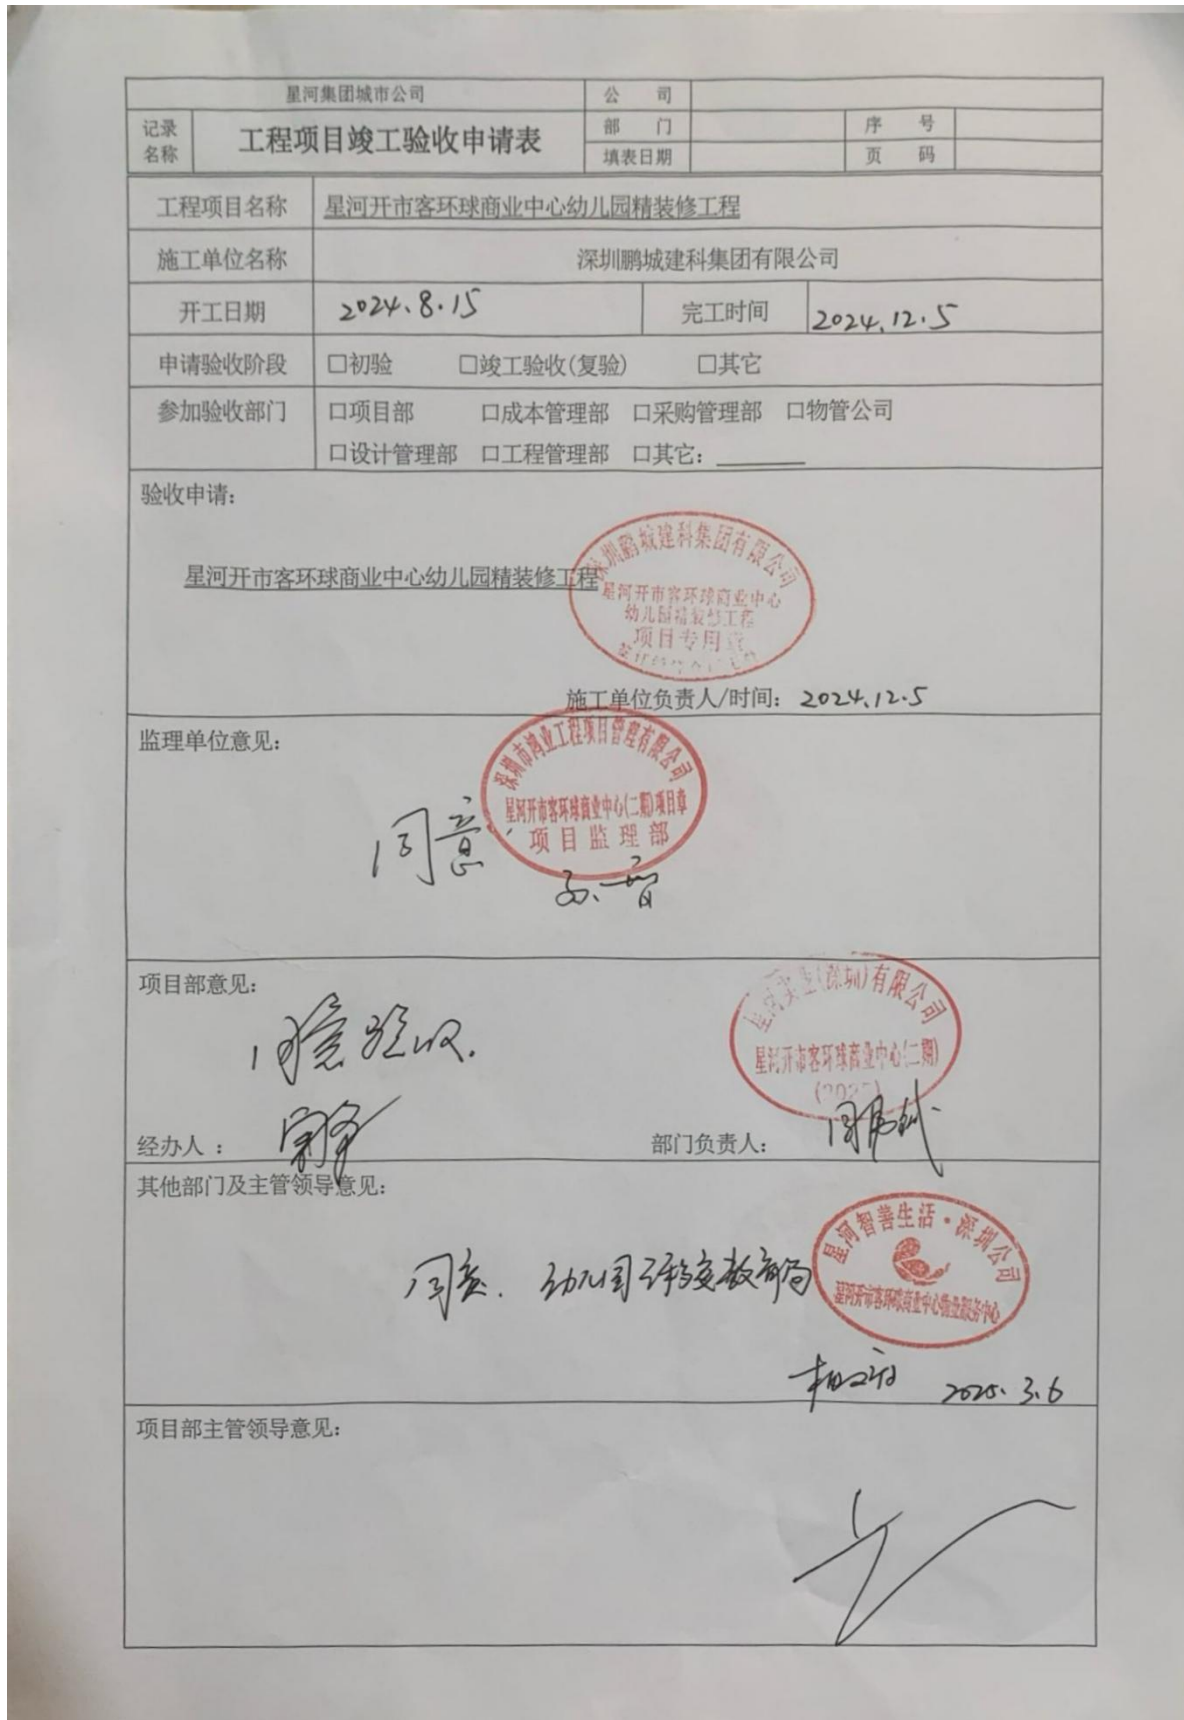 星河集团城市公司
公 司
记录名称
工程项目竣工验收申请表
部 门
序 号
填表日期
页 码
工程项目名称 星河开市客环球商业中心幼儿园精装修工程
施工单位名称 深圳鹏城建科集团有限公司
开工日期 2024.8.15 完工时间 2024.12.5
申请验收阶段 □初验 □竣工验收(复验) □其它
参加验收部门 □项目部 □成本管理部 □采购管理部 □物管公司
□设计管理部 □工程管理部 □其它:
验收申请:
深圳鹏城建科集团有限公司
星河开市客环球商业中心幼儿园精装修工程
星河开市客环球商业中心
幼儿园精装修工程
项目专用章
施工单位负责人/时间: 2024.12.5
监理单位意见:
深圳市鸿业工程项目管理有限公司
星河开市客环球商业中心(二期)项目章
项目监理部
同意.
项目部意见:
星河实业(深圳)有限公司
星河开市客环球商业中心(二期)
同意验收.
经办人: 部门负责人:
其他部门及主管领导意见:
星河智善生活·深圳公司
星河开市客环球商业中心物业服务中心
同意. 幼儿园移交教育局
2025.3.6
项目部主管领导意见: